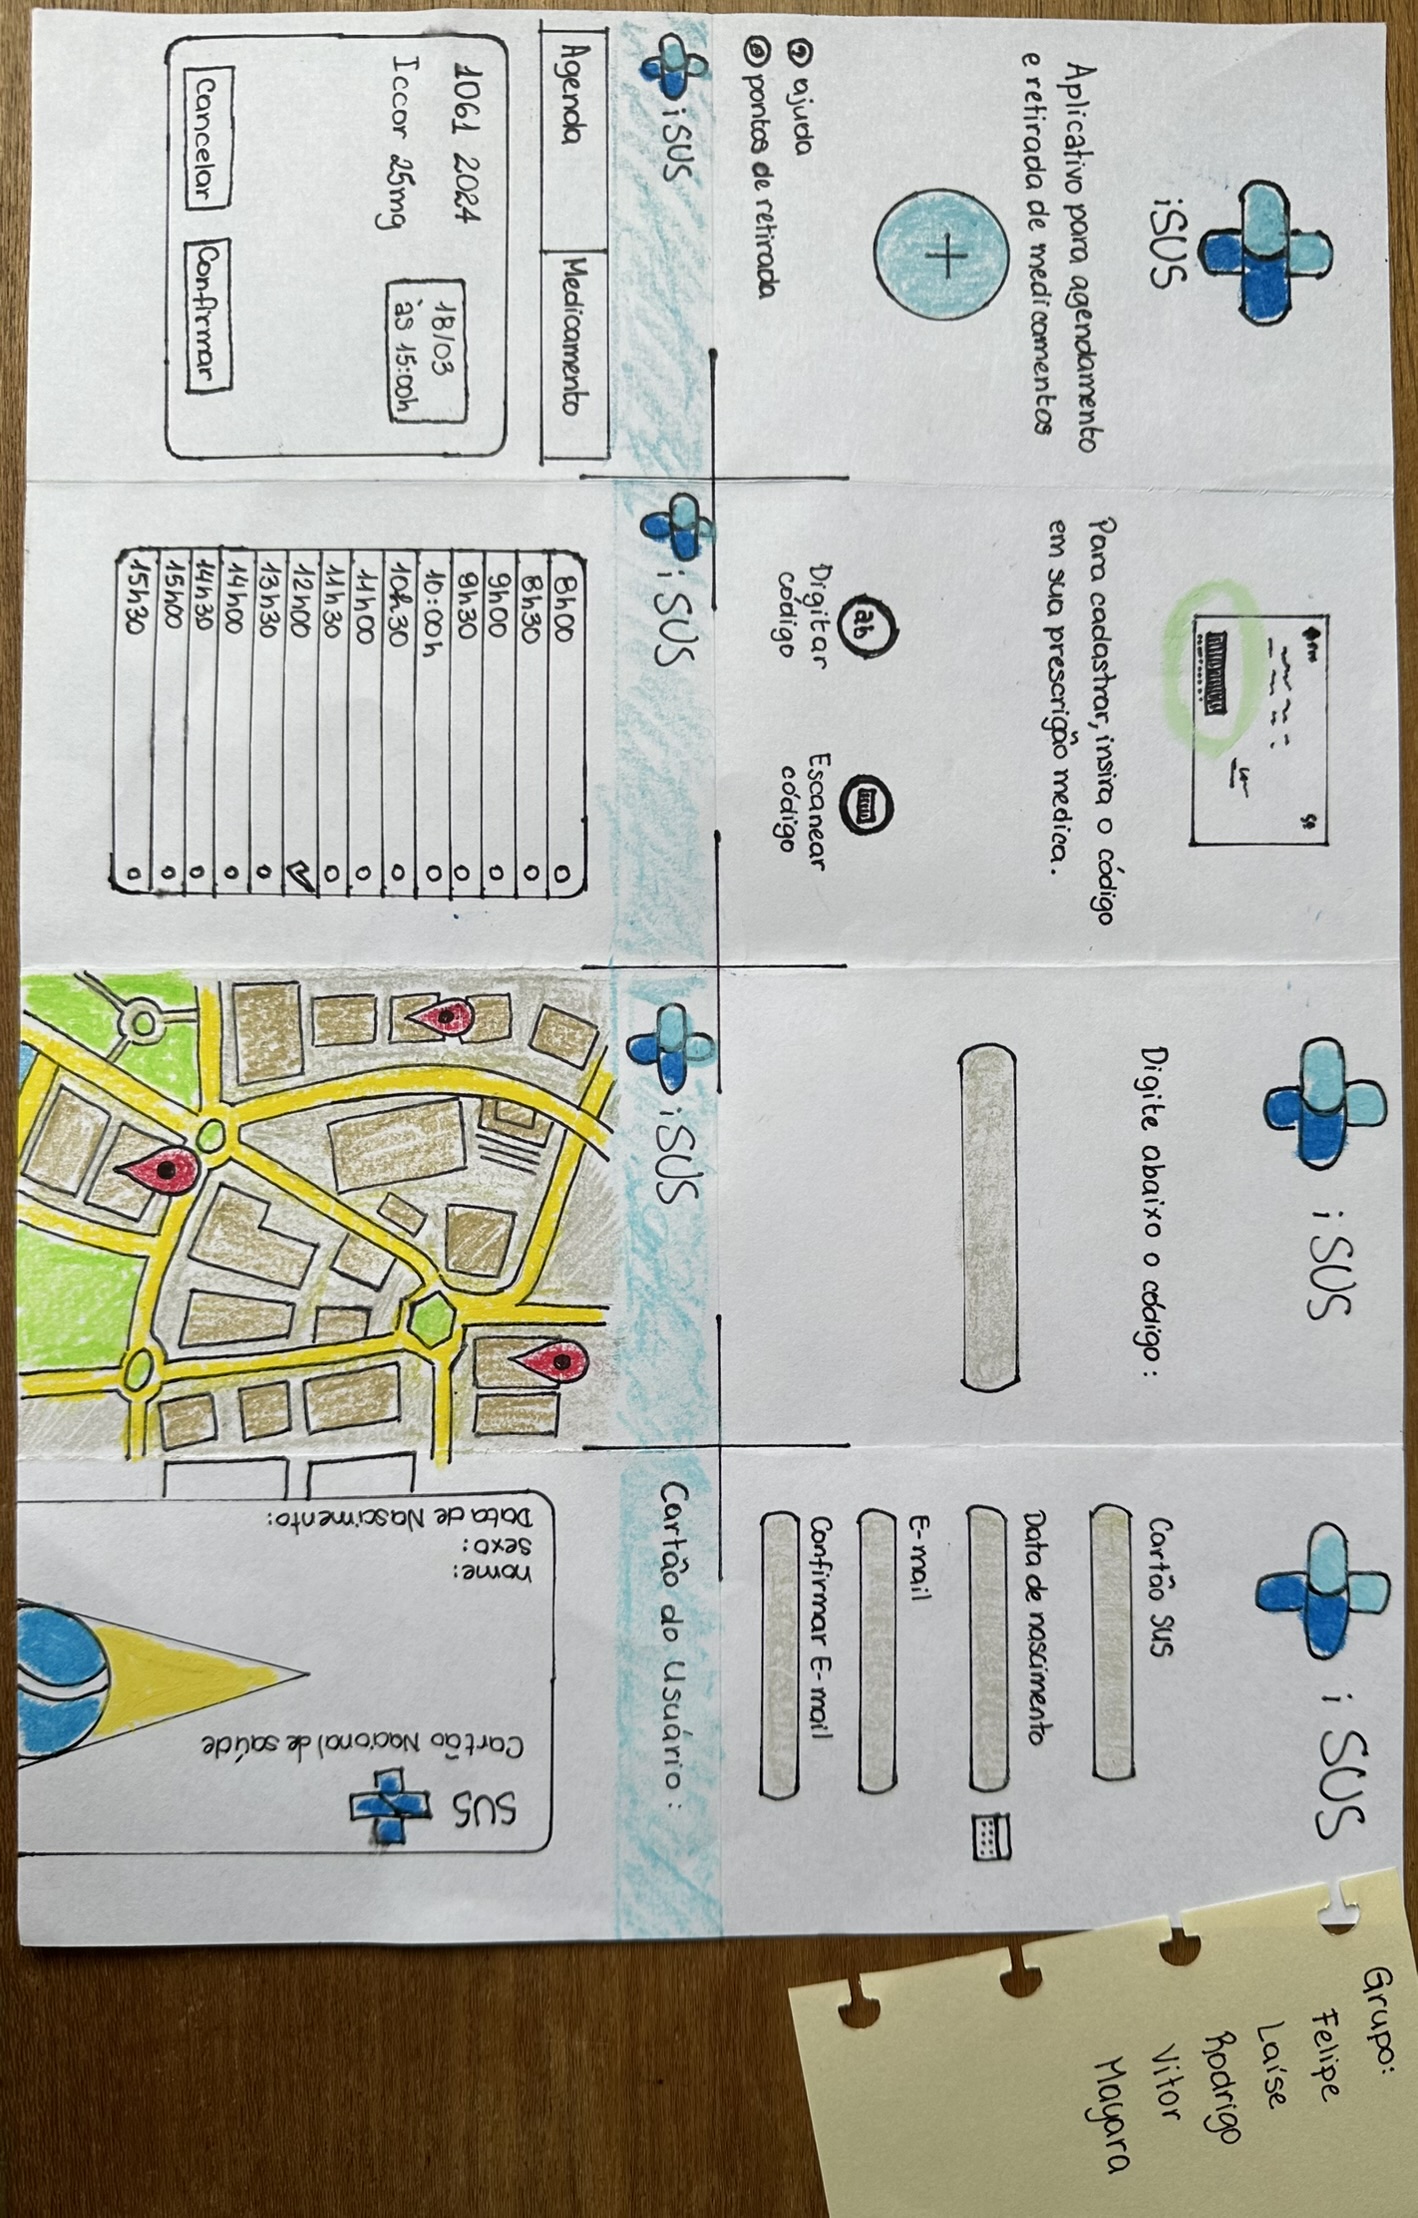 iSUS
Aplicativo para agendamento
e retirada de medicamentos
+
? ajuda
pontos de retirada
Para cadastrar, insira o código
em sua prescrição medica.
ab
Digitar
código
Escanear
código
iSUS
Digite abaixo o código:
iSUS
Cartão SUS
Data de nascimento
E-mail
Confirmar E-mail
Grupo:
Felipe
Laíse
Rodrigo
Vitor
Mayara
iSUS
Agenda
Medicamento
1061 2024
Iccor 25mg
18/03
às 15:00h
Cancelar
Confirmar
iSUS
8h00
8h30
9h00
9h30
10:00h
10h30
11h00
11h30
12h00
13h30
14h00
14h30
15h00
15h30
iSUS
Cartão do Usuário:
SUS
Cartão Nacional de saúde
nome:
sexo:
Data de Nascimento: